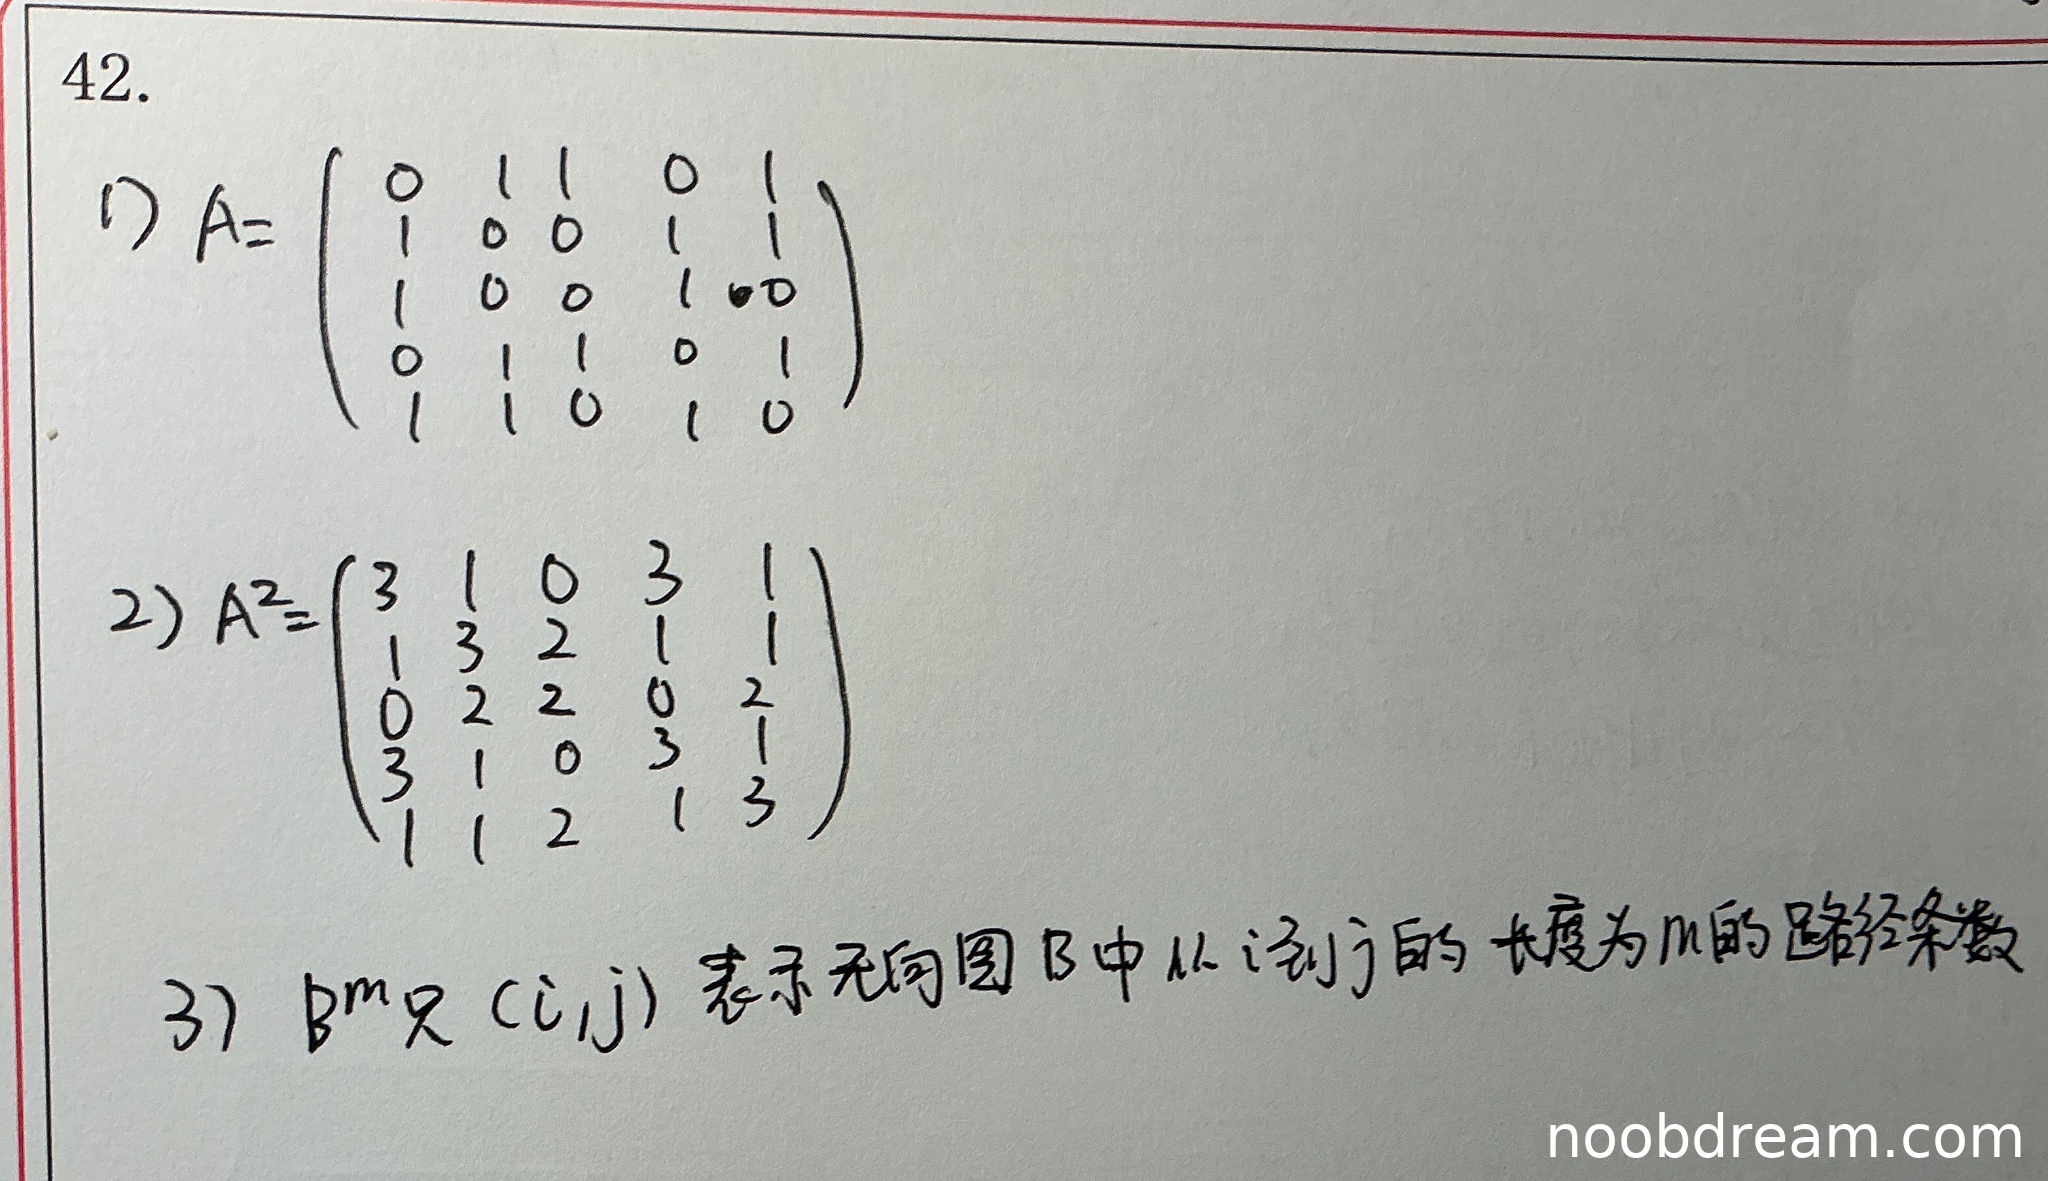 42.
1) A=
0 1 1 0 1
1 0 0 1 1
1 0 0 1 0
0 1 1 0 1
1 1 0 1 0
2) A²=
3 1 0 3 1
1 3 2 1 1
0 2 2 0 2
3 1 0 3 1
1 1 2 1 3
3) Bᵐ (i,j) 表示无向图B中从i到j的长度为m的路径条数
noobdream.com